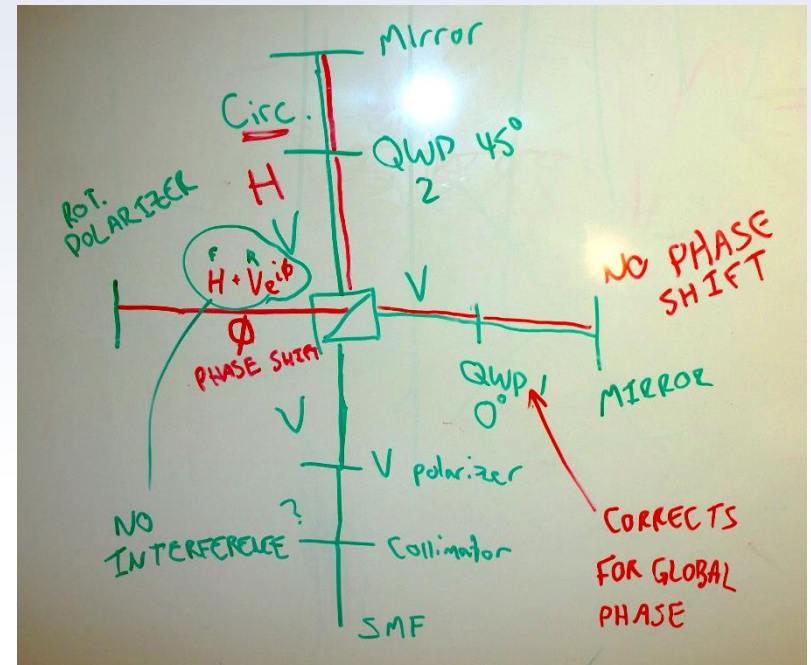 Mirror
Circ.
QWP 45°
2
H
V
ROT.
POLARIZER
F R
H + Ve^iϕ
V
NO PHASE
SHIFT
ϕ
PHASE SHIFT
QWP 1
0°
MIRROR
V
V polarizer
NO
INTERFERENCE ?
Collimator
SMF
CORRECTS
FOR GLOBAL
PHASE